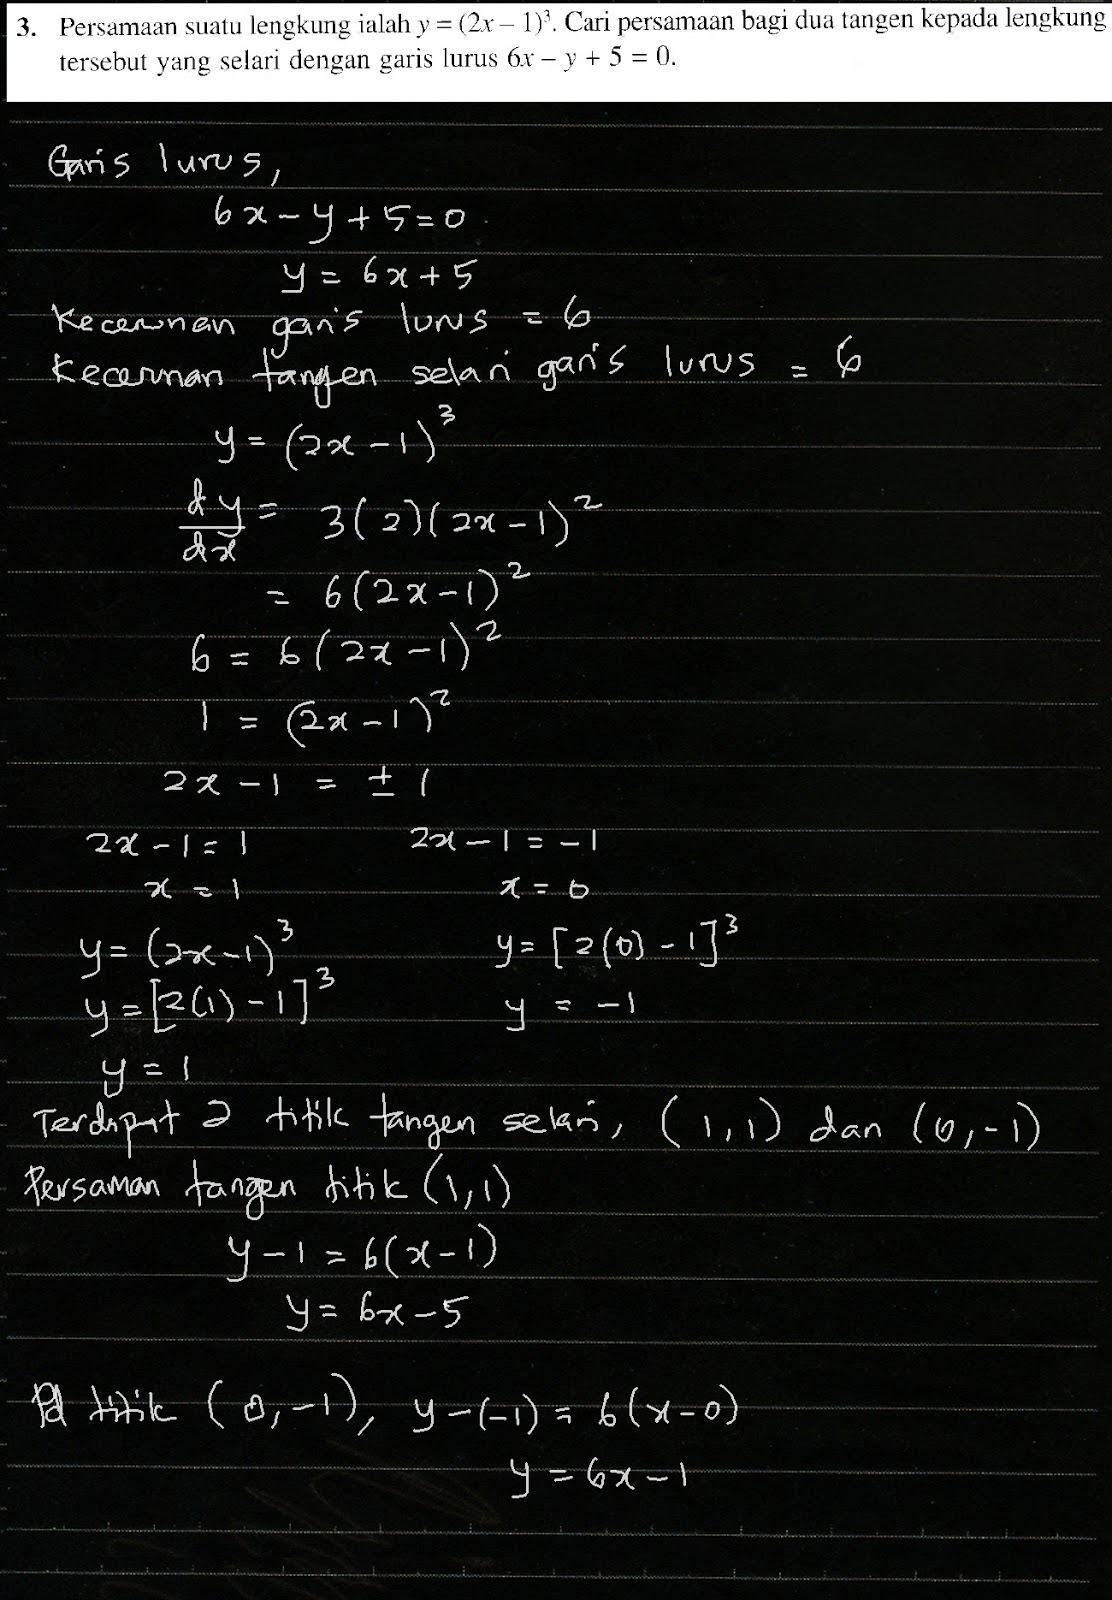 3. Persamaan suatu lengkung ialah y = (2x – 1)³. Cari persamaan bagi dua tangen kepada lengkung
tersebut yang selari dengan garis lurus 6x – y + 5 = 0.
Garis lurus,
6x - y + 5 = 0
y = 6x + 5
Kecerunan garis lurus = 6
Kecerunan tangen selari garis lurus = 6
y = (2x - 1)³
dy/dx = 3(2)(2x - 1)²
= 6(2x - 1)²
6 = 6(2x - 1)²
1 = (2x - 1)²
2x - 1 = ± 1
2x - 1 = 1 2x - 1 = -1
x = 1 x = 0
y = (2x - 1)³ y = [2(0) - 1]³
y = [2(1) - 1]³ y = -1
y = 1
Terdapat 2 titik tangen selari, (1,1) dan (0,-1)
Persaman tangen titik (1,1)
y - 1 = 6(x - 1)
y = 6x - 5
Pd titik (0,-1), y - (-1) = 6(x - 0)
y = 6x - 1